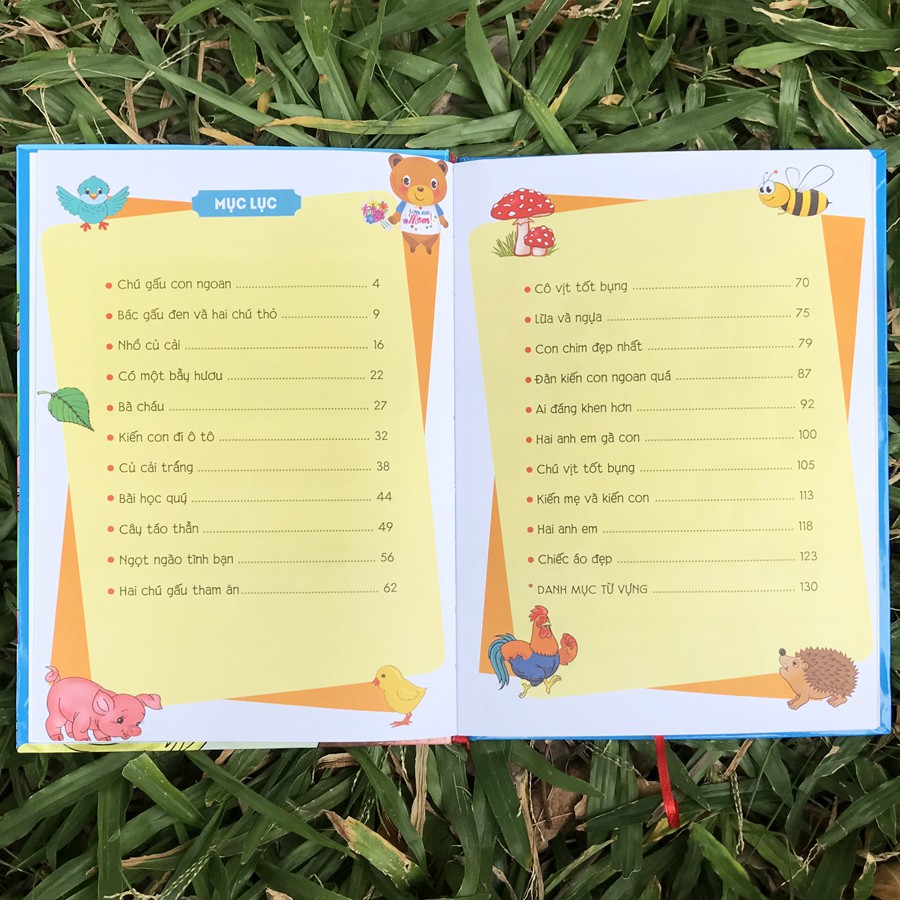 MỤC LỤC
Chú gấu con ngoan 4
Bác gấu đen và hai chú thỏ 9
Nhổ củ cải 16
Có một bầy hươu 22
Bà cháu 27
Kiến con đi ô tô 32
Củ cải trắng 38
Bài học quý 44
Cây táo thần 49
Ngọt ngào tình bạn 56
Hai chú gấu tham ăn 62
Cô vịt tốt bụng 70
Lừa và ngựa 75
Con chim đẹp nhất 79
Đàn kiến con ngoan quá 87
Ai đáng khen hơn 92
Hai anh em gà con 100
Chú vịt tốt bụng 105
Kiến mẹ và kiến con 113
Hai anh em 118
Chiếc áo đẹp 123
* DANH MỤC TỪ VỰNG 130
Mom